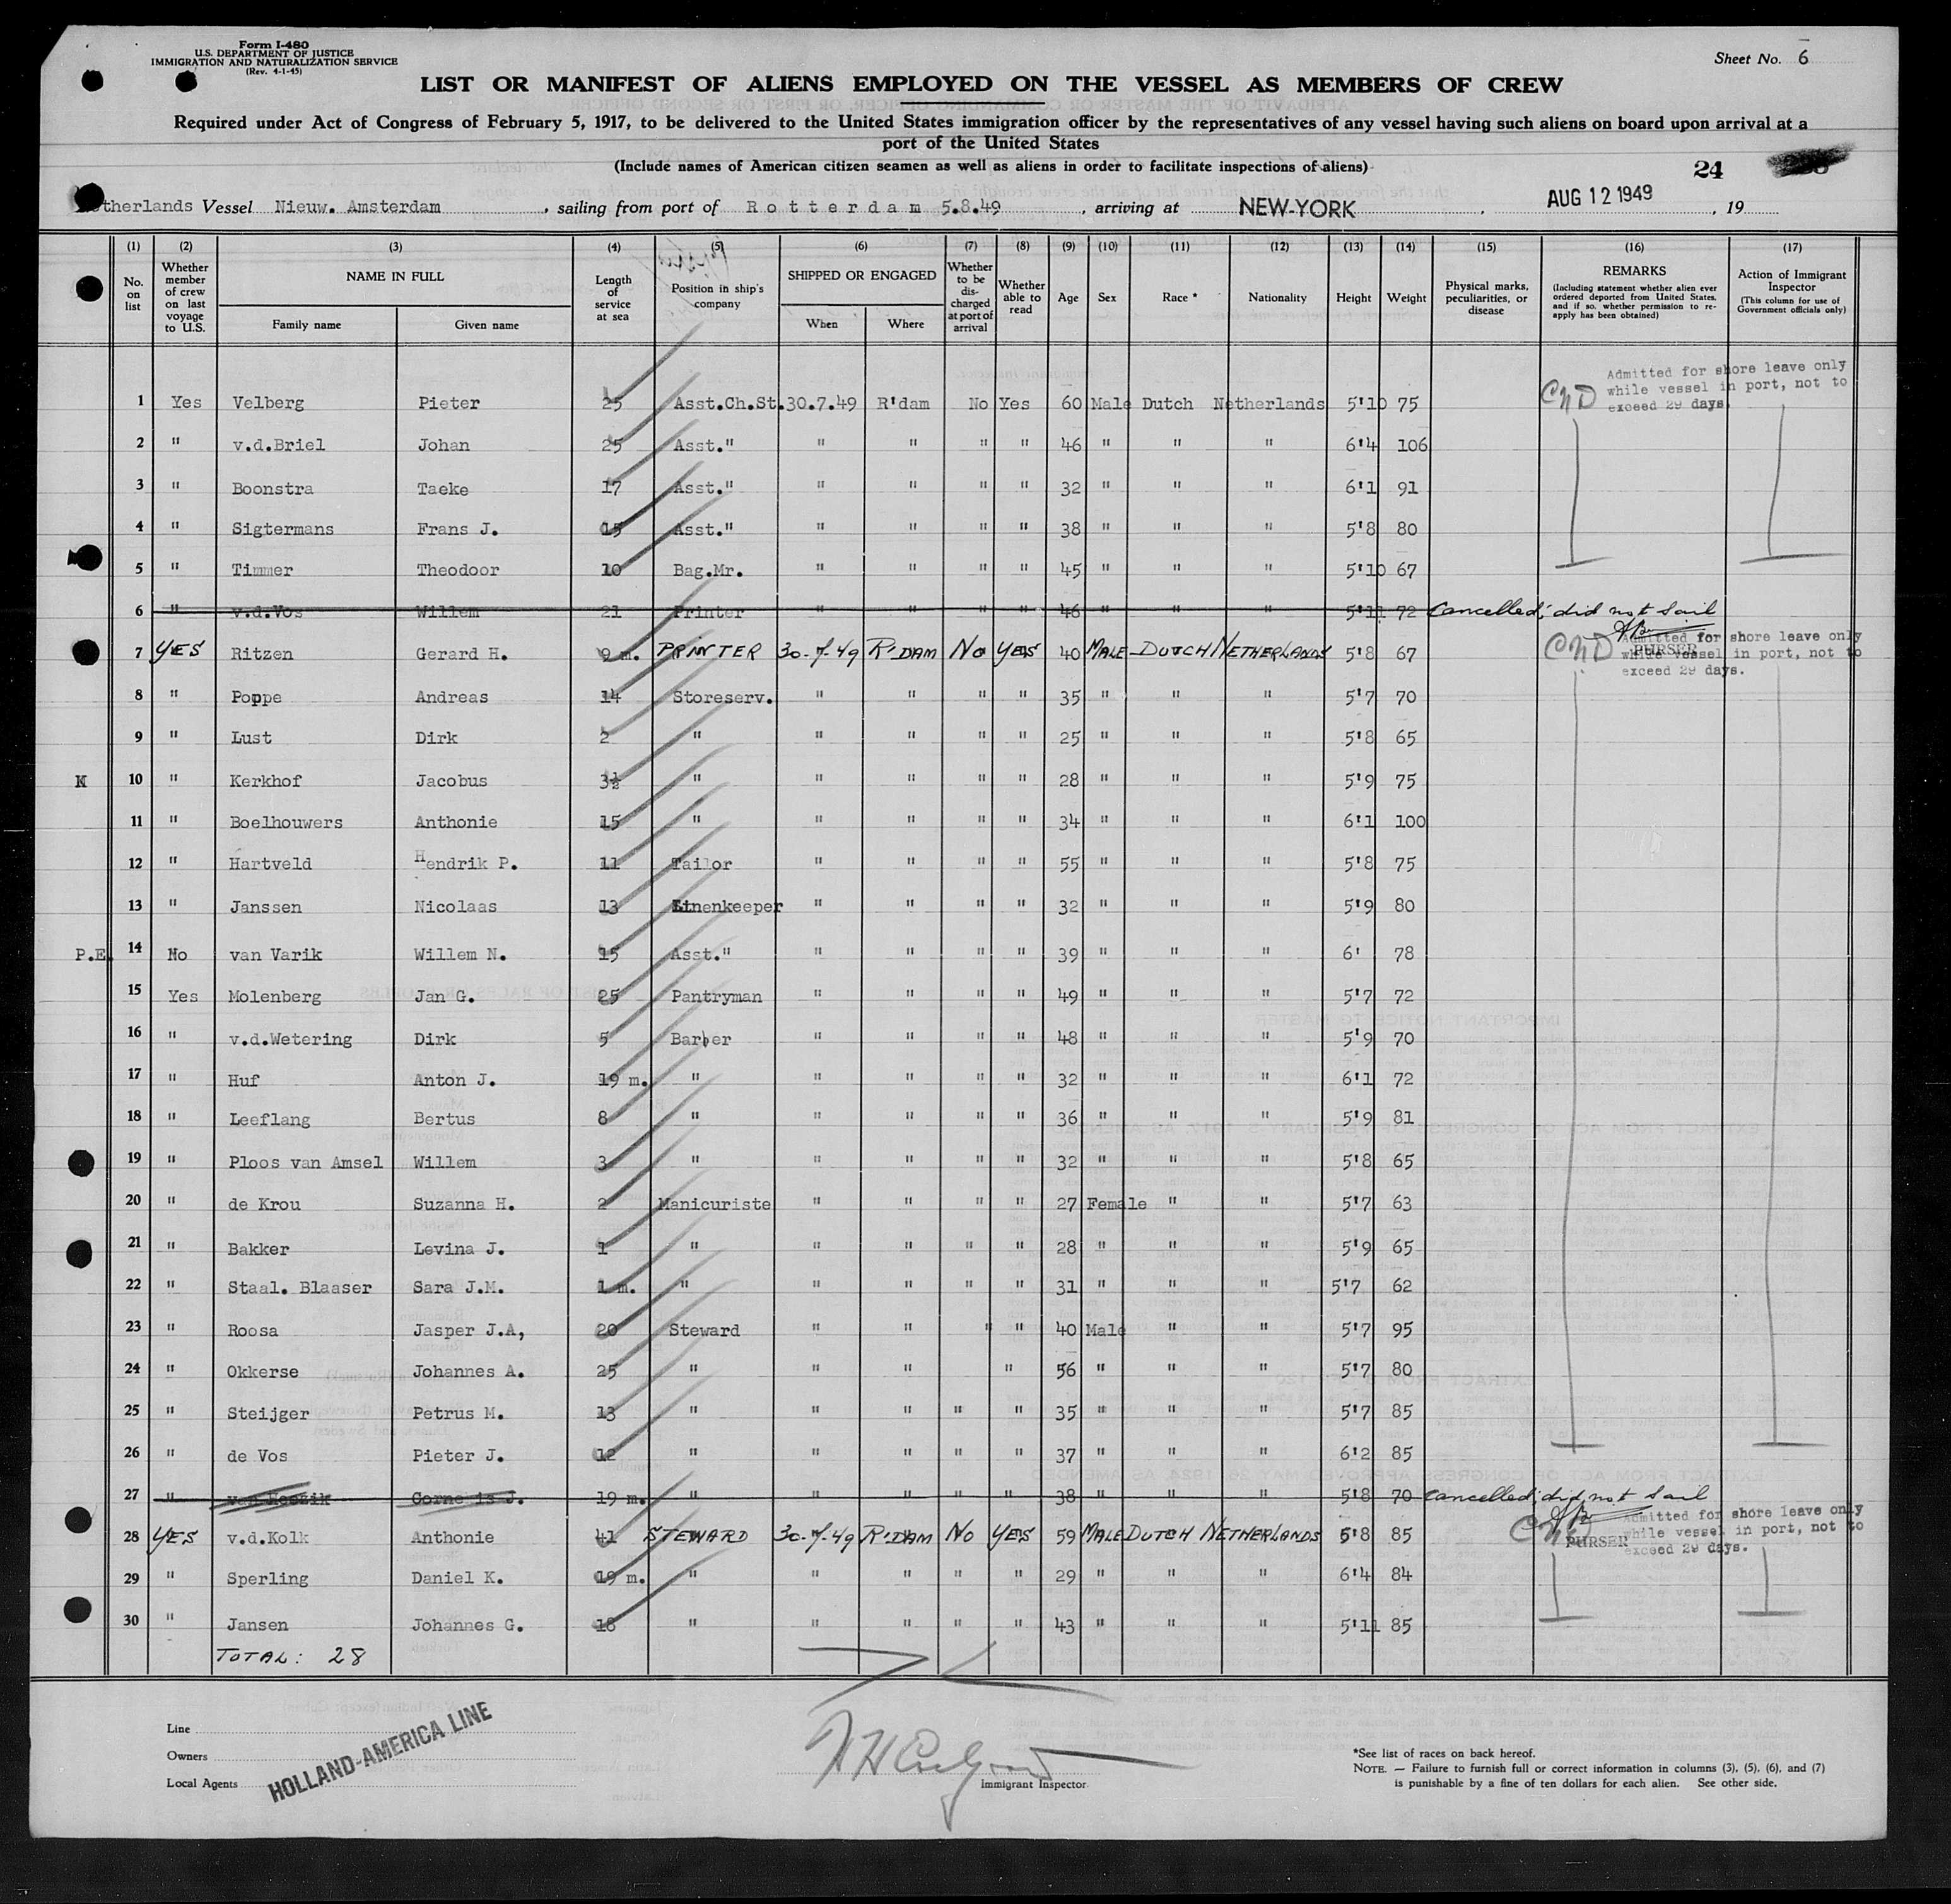 Form I-480
U.S. DEPARTMENT OF JUSTICE
IMMIGRATION AND NATURALIZATION SERVICE
(Rev. 4-1-45)
Sheet No. 6
LIST OR MANIFEST OF ALIENS EMPLOYED ON THE VESSEL AS MEMBERS OF CREW
Required under Act of Congress of February 5, 1917, to be delivered to the United States immigration officer by the representatives of any vessel having such aliens on board upon arrival at a
port of the United States
(Include names of American citizen seamen as well as aliens in order to facilitate inspections of aliens)
24
therlands Vessel Nieuw. Amsterdam, sailing from port of Rotterdam 5.8.49, arriving at NEW-YORK, AUG 12 1949, 19
(1) (2) (3) (4) (5) (6) (7) (8) (9) (10) (11) (12) (13) (14) (15) (16) (17)
No. on list Whether member of crew on last voyage to U.S. NAME IN FULL Family name Given name Length of service at sea Position in ship's company SHIPPED OR ENGAGED When Where Whether to be discharged at port of arrival Whether able to read Age Sex Race * Nationality Height Weight Physical marks, peculiarities, or disease REMARKS (Including statement whether alien ever ordered deported from United States, and if so, whether permission to re-apply has been obtained) Action of Immigrant Inspector (This column for use of Government officials only)
1 Yes Velberg Pieter 25 Asst.Ch.St. 30.7.49 R'dam No Yes 60 Male Dutch Netherlands 5'10 75 CND Admitted for shore leave only while vessel in port, not to exceed 29 days.
2 " v.d.Briel Johan 25 Asst." " " " " 46 " " " 6'4 106
3 " Boonstra Taeke 17 Asst." " " " " 32 " " " 6'1 91
4 " Sigtermans Frans J. 15 Asst." " " " " 38 " " " 5'8 80
5 " Timmer Theodoor 10 Bag.Mr. " " " " 45 " " " 5'10 67
6 " v.d.Vos Willem 21 Printer " " " " 46 " " " 5'11 72 Cancelled; did not sail
7 YES Ritzen Gerard H. 9 m. PRINTER 30-7-49 R'DAM NO YES 40 MALE DUTCH NETHERLANDS 5'8 67 CND PURSER Admitted for shore leave only while vessel in port, not to exceed 29 days.
8 " Poppe Andreas 14 Storeserv. " " " " 35 " " " 5'7 70
9 " Lust Dirk 2 " " " " " 25 " " " 5'8 65
N 10 " Kerkhof Jacobus 3½ " " " " " 28 " " " 5'9 75
11 " Boelhouwers Anthonie 15 " " " " " 34 " " " 6'1 100
12 " Hartveld Hendrik P. 11 Tailor " " " " 55 " " " 5'8 75
13 " Janssen Nicolaas 13 Linenkeeper " " " " 32 " " " 5'9 80
P.E. 14 No van Varik Willem N. 15 Asst." " " " " 39 " " " 6' 78
15 Yes Molenberg Jan G. 25 Pantryman " " " " 49 " " " 5'7 72
16 " v.d.Wetering Dirk 5 Barber " " " " 48 " " " 5'9 70
17 " Huf Anton J. 19 m. " " " " " 32 " " " 6'1 72
18 " Leeflang Bertus 8 " " " " " 36 " " " 5'9 81
19 " Ploos van Amsel Willem 3 " " " " " 32 " " " 5'8 65
20 " de Krou Suzanna H. 2 Manicuriste " " " " 27 Female " " 5'7 63
21 " Bakker Levina J. 1 " " " " " 28 " " " 5'9 65
22 " Staal. Blaaser Sara J.M. 1 m. " " " " " 31 " " " 5'7 62
23 " Roosa Jasper J.A, 20 Steward " " " " 40 Male " " 5'7 95
24 " Okkerse Johannes A. 25 " " " " 56 " " " 5'7 80
25 " Steijger Petrus M. 13 " " " " " 35 " " " 5'7 85
26 " de Vos Pieter J. 12 " " " " " 37 " " " 6'2 85
27 " van J. 19 m. " " " " " 38 " " " 5'8 70 Cancelled; did not sail
28 YES v.d.Kolk Anthonie 41 STEWARD 30-7-49 R'DAM NO YES 59 MALE DUTCH NETHERLANDS 5'8 85 CND PURSER Admitted for shore leave only while vessel in port, not to exceed 29 days.
29 " Sperling Daniel K. 19 m. " " " " " 29 " " " 6'4 84
30 " Jansen Johannes G. 18 " " " " " 43 " " " 5'11 85
TOTAL: 28
Line
Owners
Local Agents
HOLLAND-AMERICA LINE
Immigrant Inspector
*See list of races on back hereof.
NOTE. — Failure to furnish full or correct information in columns (3), (5), (6), and (7)
is punishable by a fine of ten dollars for each alien. See other side.